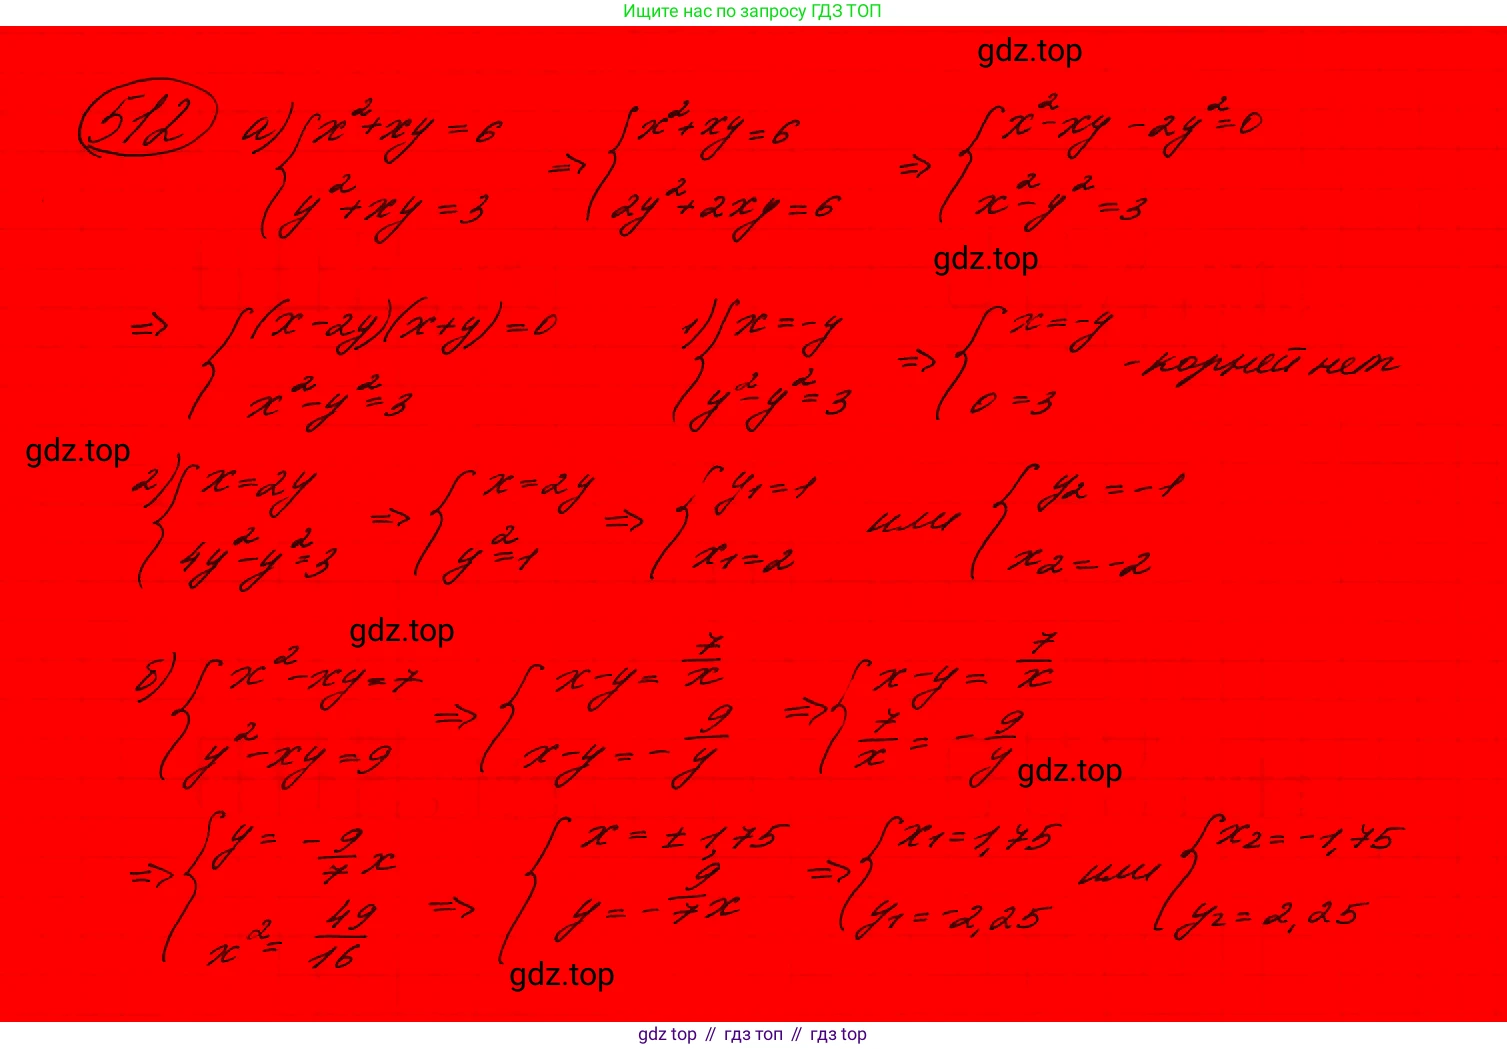 Ищите нас по запросу ГДЗ ТОП
gdz.top
512 а) { x²+xy=6 ; y²+xy=3 => { x²+xy=6 ; 2y²+2xy=6 => { x²-xy-2y²=0 ; x²-y²=3
gdz.top
=> { (x-2y)(x+y)=0 ; x²-y²=3 1) { x=-y ; y²-y²=3 => { x=-y ; 0=3 - корней нет
gdz.top
2) { x=2y ; 4y²-y²=3 => { x=2y ; y²=1 => { y1=1 ; x1=2 или { y2=-1 ; x2=-2
gdz.top
б) { x²-xy=7 ; y²-xy=9 => { x-y=7/x ; x-y=-9/y => { x-y=7/x ; 7/x=-9/y
gdz.top
=> { y=-9/7x ; x²=49/16 => { x=±1,75 ; y=-9/7x => { x1=1,75 ; y1=-2,25 или { x2=-1,75 ; y2=2,25
gdz.top
gdz top // гдз топ // гдз top